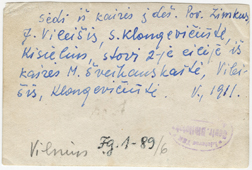 Sėdi iš kairės į deš. Pov. Zinkus
J. Vileišis, S. Klongevičiūtė,
Kisielius, stovi 2-je eilėje iš
kairės M. Šveikauskaitė, Vilei-
šis, Klongevičiūtė. V., 1911.
Vilnius Fg. 1-89/6